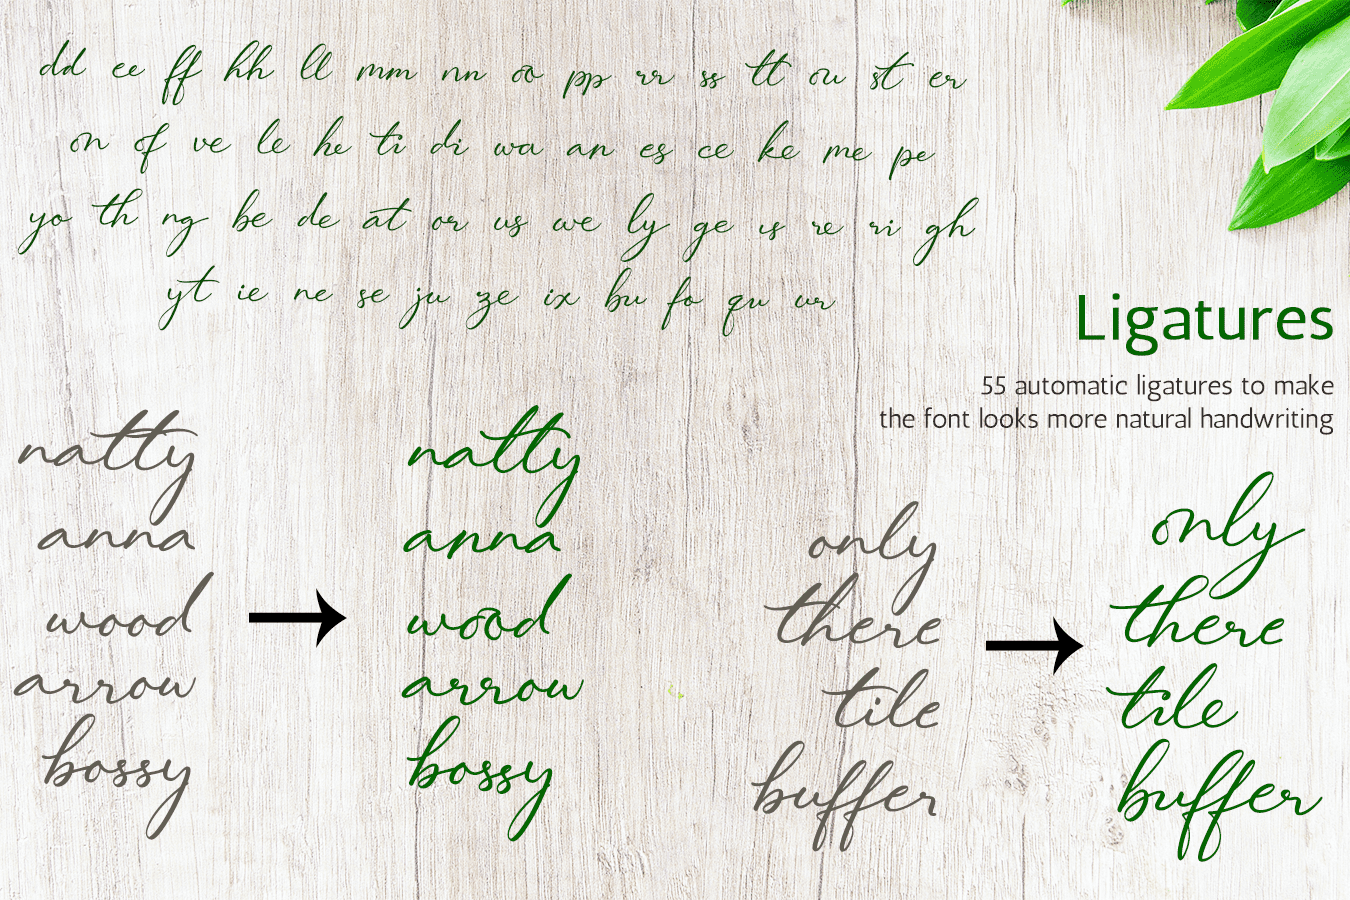 dd ee ff hh ll mm nn oo pp rr ss tt ou st er
on of ve le he ti di wa an es ce ke me pe
yo th ng be de at or us we ly ge is re ri gh
yt ie ne se ju ze ix bu fo qu ur
Ligatures
55 automatic ligatures to make
the font looks more natural handwriting
natty
anna
wood
arrow
bossy
natty
anna
wood
arrow
bossy
only
there
tile
buffer
only
there
tile
buffer